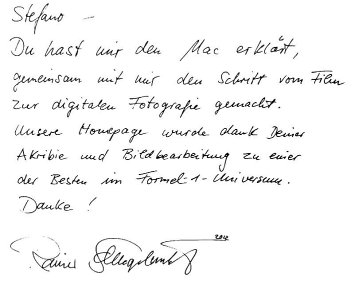 Stefano –
Du hast mir den Mac erklärt,
gemeinsam mit mir den Schritt vom Film
zur digitalen Fotografie gemacht.
Unsere Homepage wurde dank Deiner
Akribie und Bildbearbeitung zu einer
der Besten im Formel-1-Universum.
Danke!
Rainer